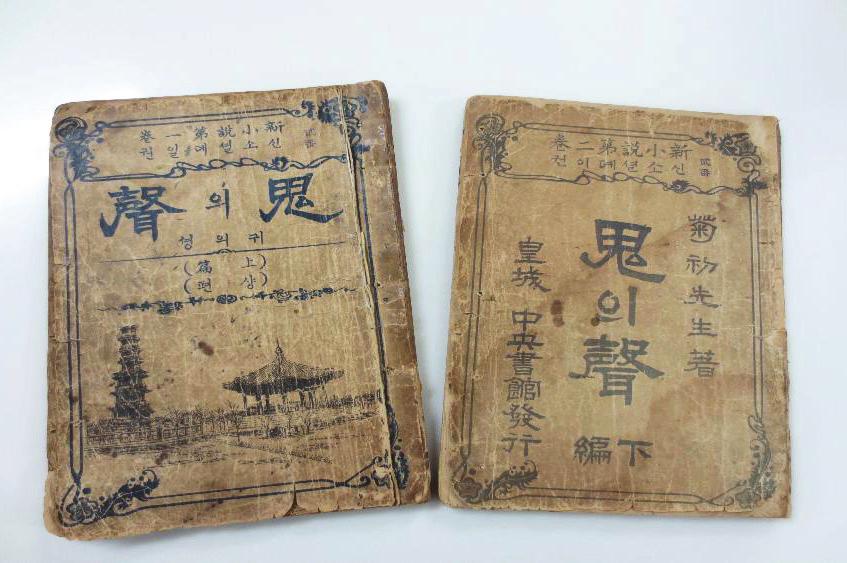 新小說第一卷
신소셜뎨일권
鬼의聲
귀의셩
(上篇)
(상편)
新小說第二卷
신소셜뎨이권
菊初先生著
鬼의聲
下編
皇城 中央書館發行